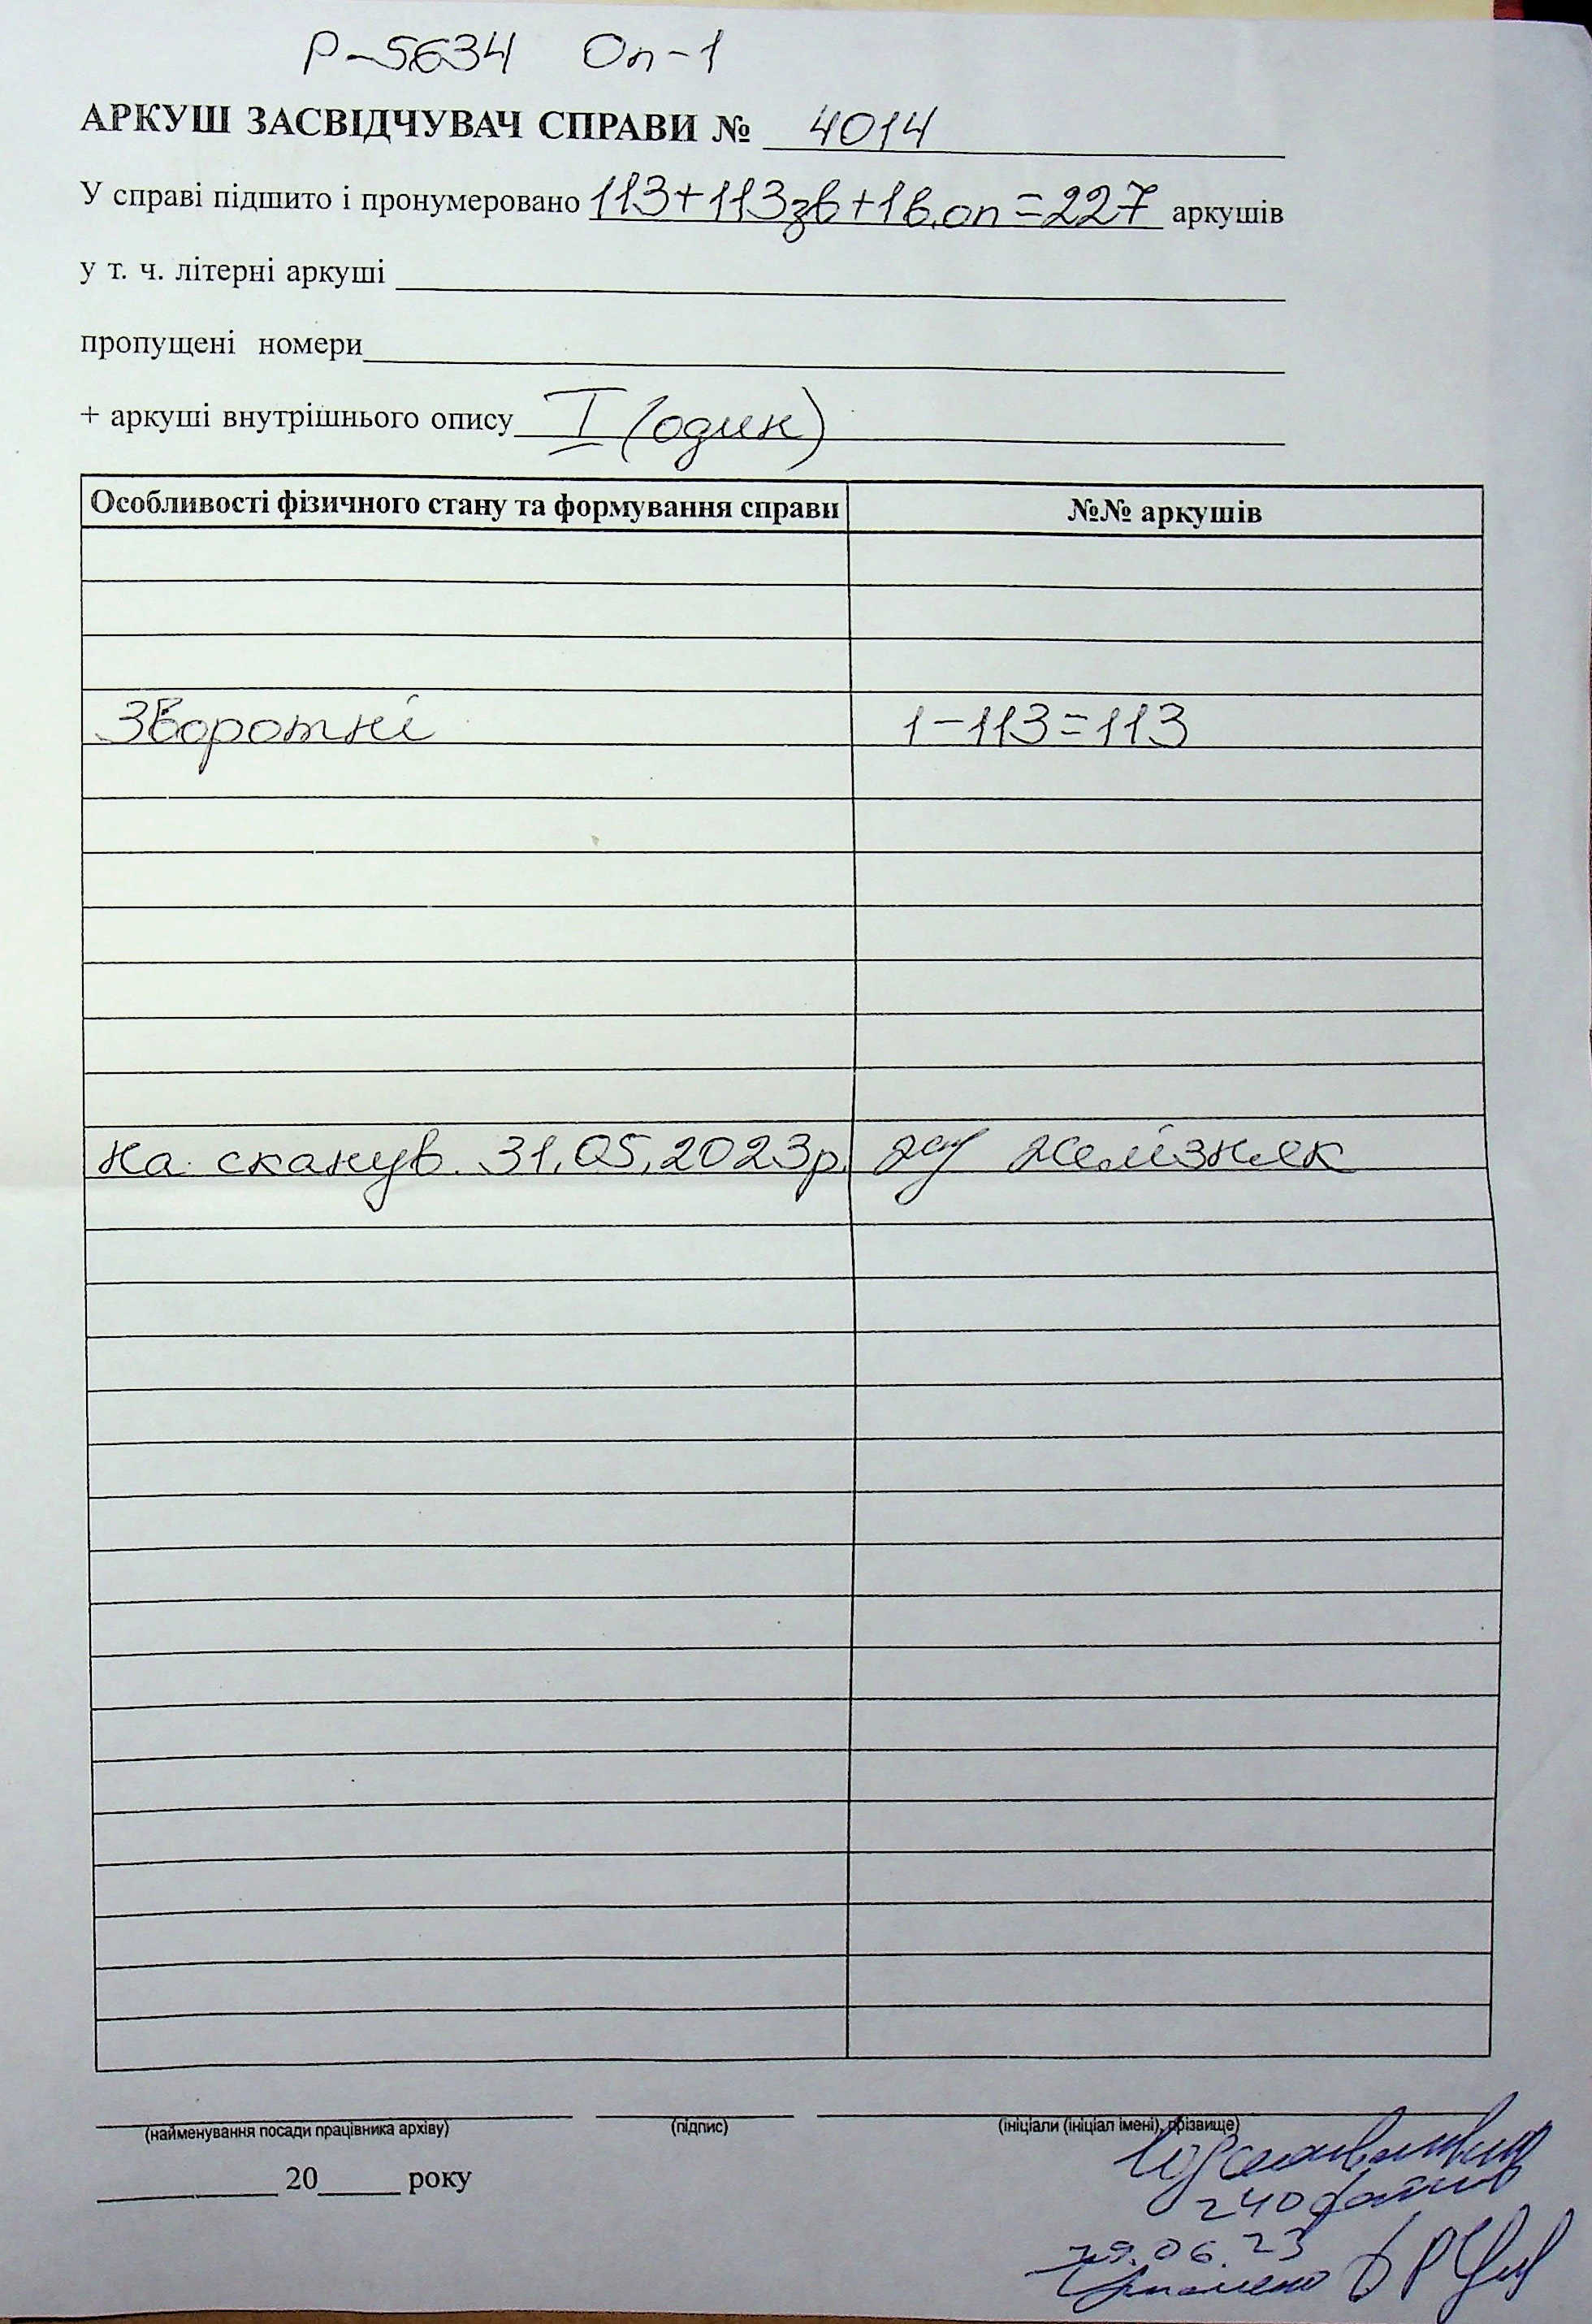 Р-5634 Оп-1
АРКУШ ЗАСВІДЧУВАЧ СПРАВИ № 4014
У справі підшито і пронумеровано 113+113зв+1в.оп=227 аркушів
у т. ч. літерні аркуші
пропущені номери
+ аркуші внутрішнього опису I (один)
Особливості фізичного стану та формування справи №№ аркушів
Зворотні 1-113=113
на сканув. 31.05.2023р. Желізняк
(найменування посади працівника архіву) (підпис) (ініціали (ініціал імені), прізвище)
20 року
240 файлів
29.06.23